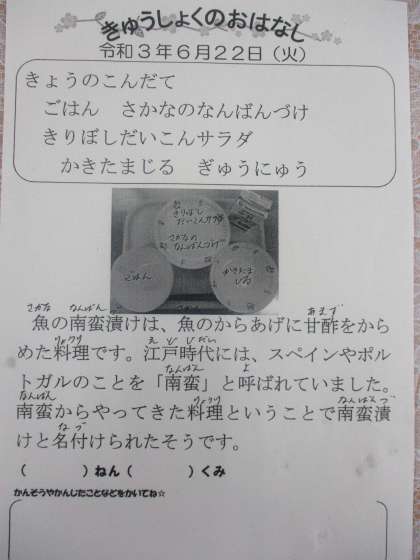 きゅうしょくのおはなし
令和３年６月２２日（火）
きょうのこんだて
ごはん　さかなのなんばんづけ
きりぼしだいこんサラダ
かきたまじる　ぎゅうにゅう
きりぼし
だいこんサラダ
さかなの
なんばんづけ
ごはん
かきたま
じる
さかな　なんばん　あまず
魚の南蛮漬けは、魚のからあげに甘酢をから
りょうり　えどじだい
めた料理です。江戸時代には、スペインやポル
なんばん　よ
トガルのことを「南蛮」と呼ばれていました。
なんばん　りょうり　なんばんづ
南蛮からやってきた料理ということで南蛮漬
なづ
けと名付けられたそうです。
（　　　）ねん（　　　）くみ
かんそうやかんじたことなどをかいてね☆